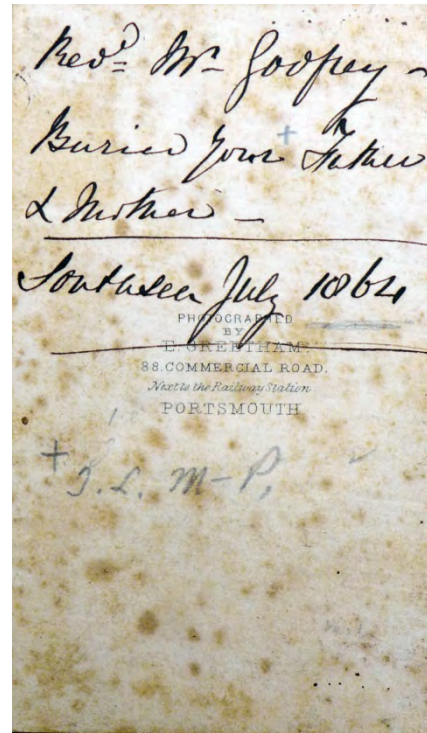 Revd Mr Godfrey –
Buried your Father
& Mother –
Southsea July 1864
PHOTOGRAPHED
BY
E. GREETHAM.
88. COMMERCIAL ROAD.
Next to the Railway Station
PORTSMOUTH
+ J. L. M–P.